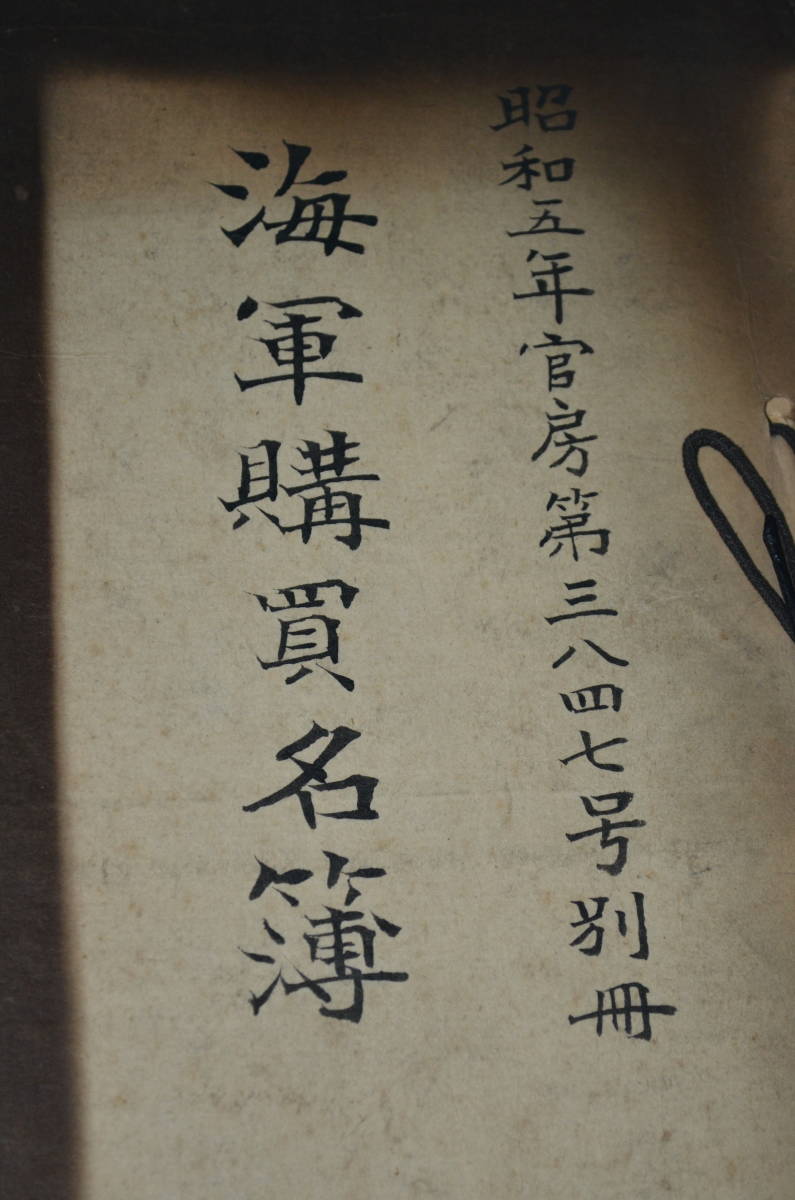 昭和五年官房第三八四七号別冊
海軍購買名簿